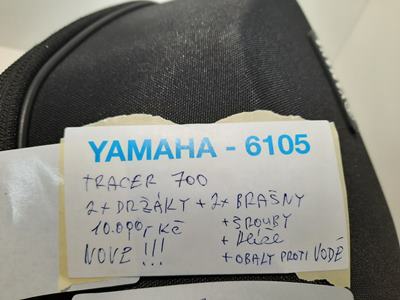 YAMAHA - 6105
TRACER 700
2x DRŽÁKY + 2x BRAŠNY
10.000,- Kč + ŠROUBY
NOVÉ !!! + klíče
+ OBALY PROTI VODĚ